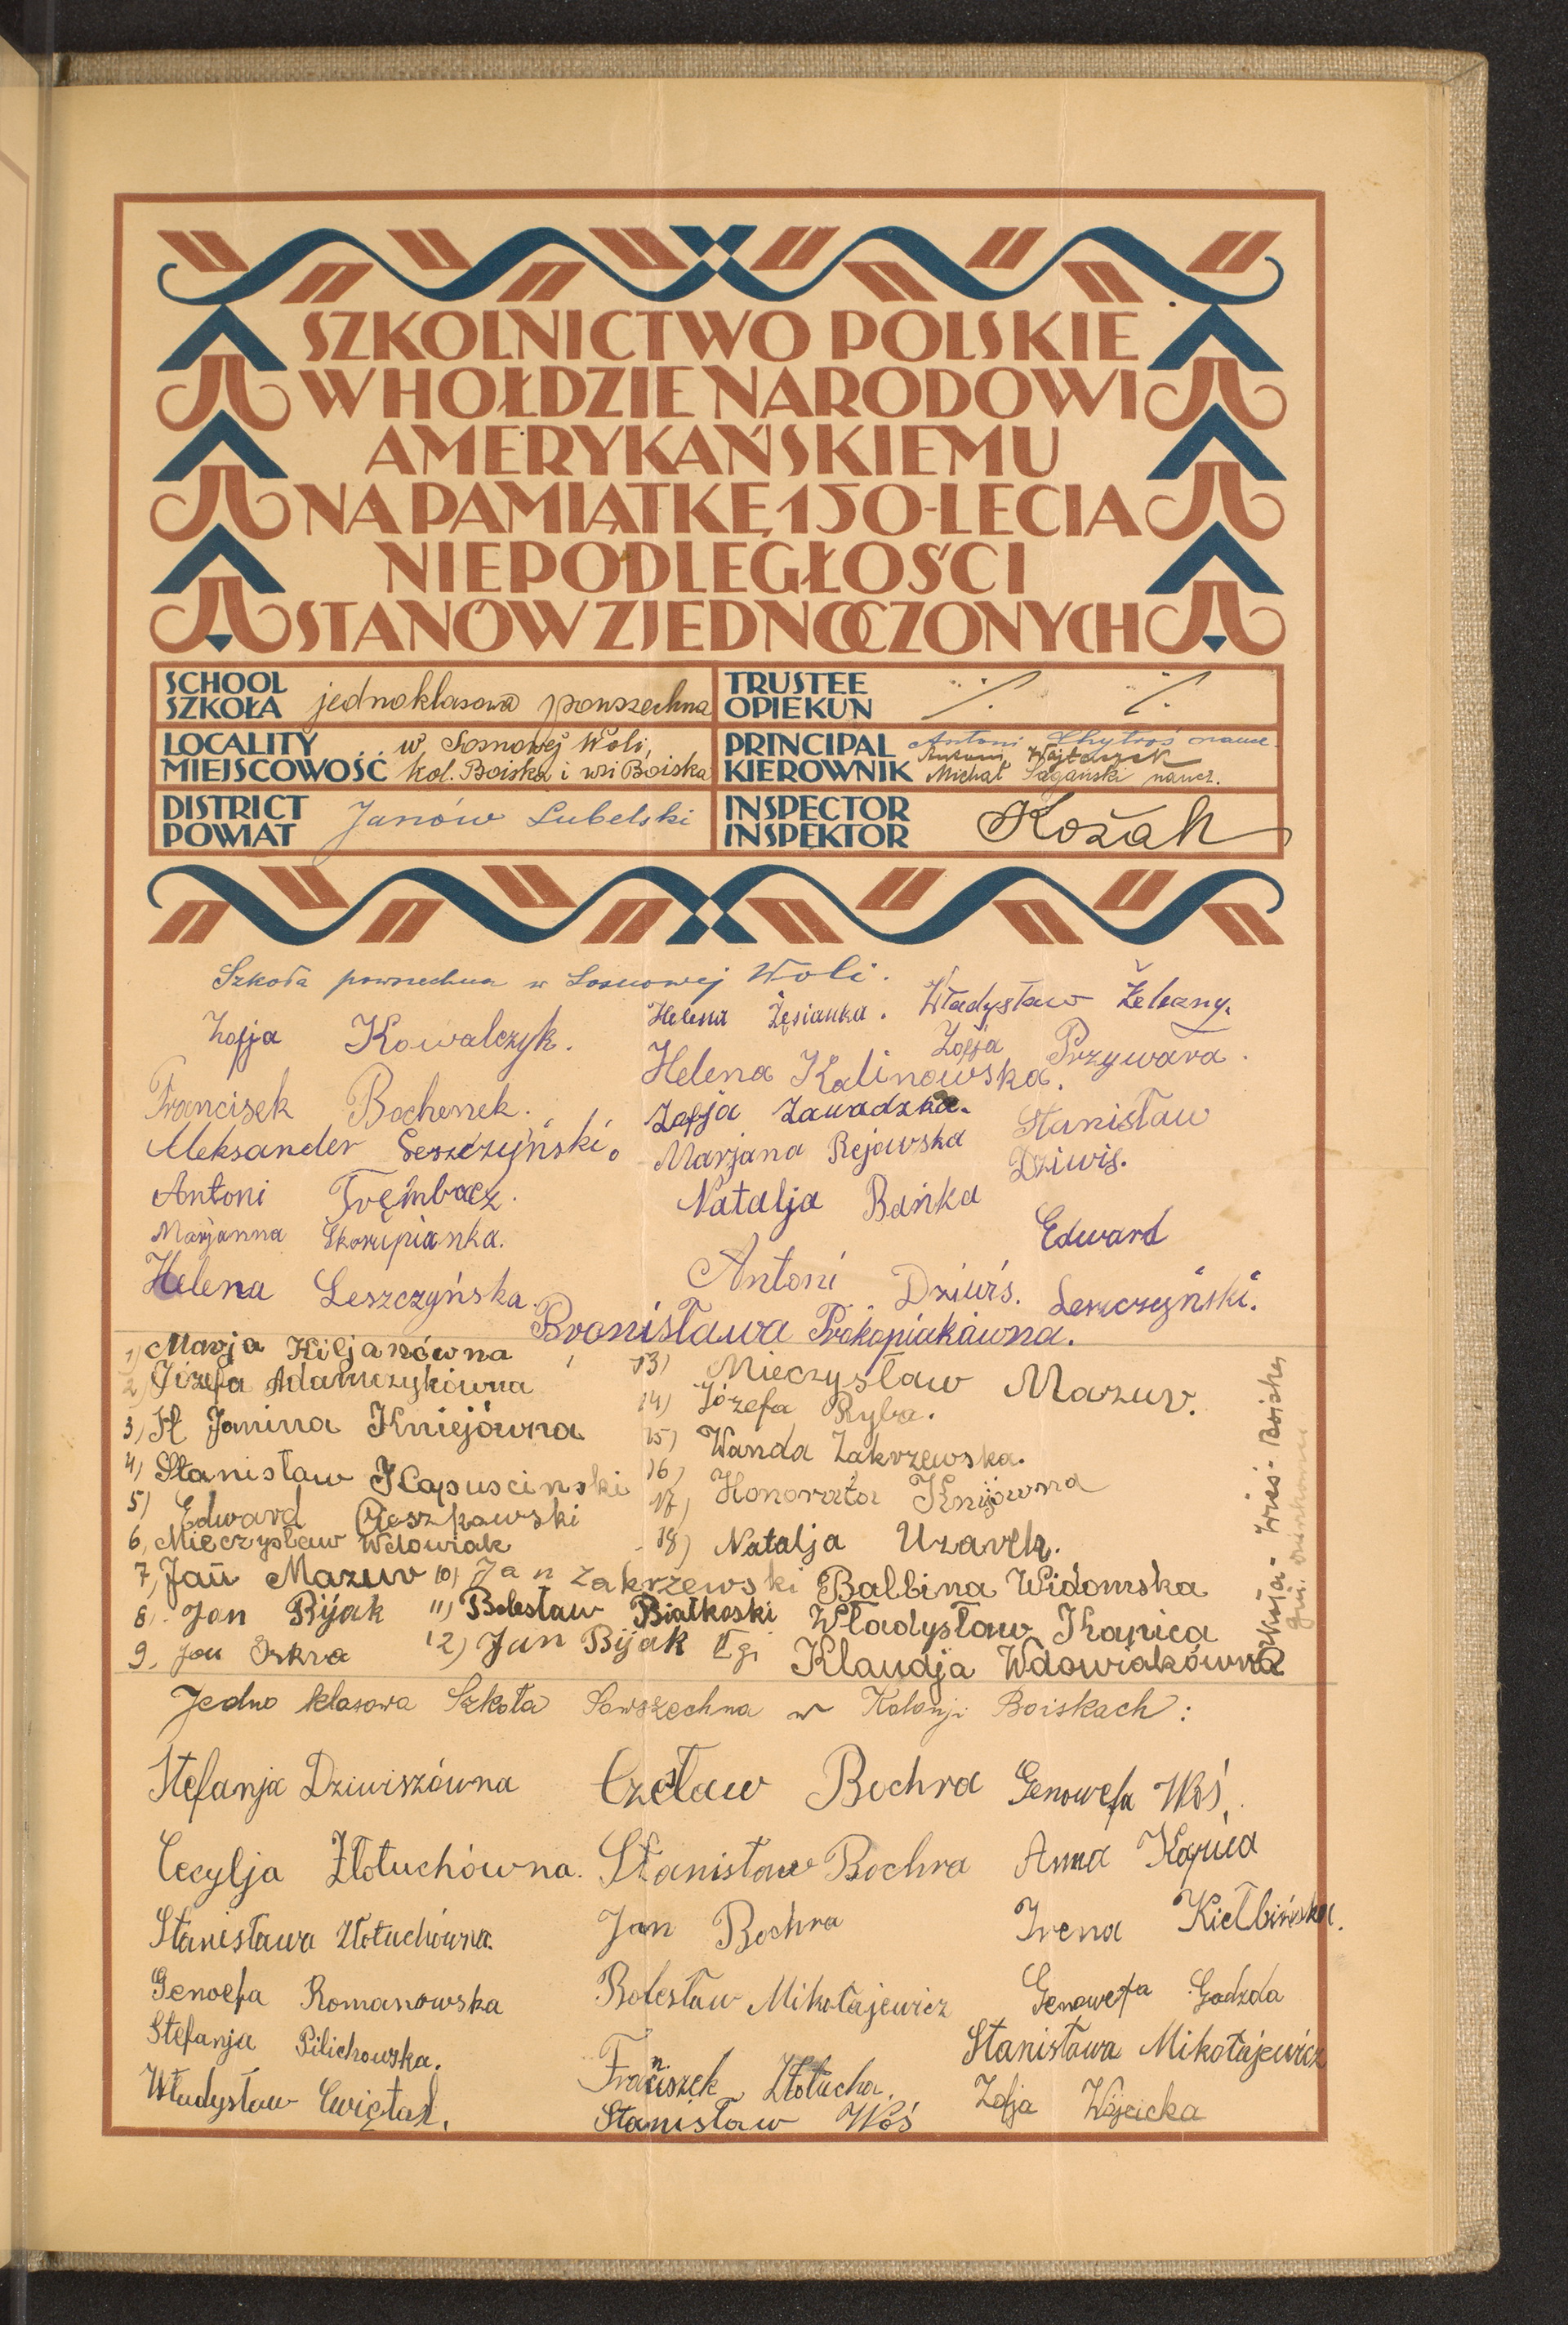 SZKOLNICTWO POLSKIE
W HOŁDZIE NARODOWI
AMERYKAŃSKIEMU
NA PAMIĄTKĘ 150-LECIA
NIEPODLEGŁOŚCI
STANÓW ZJEDNOCZONYCH
SCHOOL
SZKOŁA jednoklasowa powszechna
TRUSTEE
OPIEKUN
LOCALITY
MIEJSCOWOŚĆ w Sosnowej Woli,
kol. Boiska i wsi Boiska
PRINCIPAL
KIEROWNIK Antoni naucz.
Antoni Wojtaszek
Michał Sagański naucz.
DISTRICT
POWIAT Janów Lubelski
INSPECTOR
INSPEKTOR Kozak
Szkoła powszechna w Sosnowej Woli.
Zofja Kowalczyk.
Francisek Bochenek.
Aleksander Leszczyński.
Antoni Trembacz.
Marjanna Skorupianka.
Helena Leszczyńska.
Helena Zęsianka.
Helena Kalinowska.
Zofja Zawadzka.
Marjana Rejowska
Natalja Bańka
Antoni Dziwiś.
Bronisława Prokopiakówna.
Władysław Żelazny.
Zofja Przywara.
Stanisław
Dziwiś.
Edward
Leszczyński.
1) Marja Kiljanówna
2) Józefa Adamczykówna
3) H Janina Kniejówna
4) Stanisław Kapuscinski
5) Edward Cieszkowski
6, Mieczysław Wdowiak
7, Jan Mazur
8, Jan Bijak
9, Jan Iskra
10) Jan Zakrzewski
11) Bolesław Białkoski
12) Jan Bijak II gi
13) Mieczysław Mazur.
14) Józefa Ryba.
15) Wanda Zakrzewska.
16)
17) Honorata Kniejówna
18) Natalja Uzarek.
Balbina Widomska
Władysław Kapica
Klaudja Wdowiakówna
Jedno klasowa Szkoła Powszechna w Kolonji Boiskach:
Stefanja Dziwiszówna
Cecylja Złotuchówna.
Stanisława Złotuchówna.
Genoefa Romanowska
Stefanja Pilichowska.
Władysław Cwiętal.
Czesław Bochra
Stanisław Bochra
Jan Bochra
Bolesław Mikołajewicz
Franciszek Złotucha.
Stanisław Woś
Genowefa Woś.
Anna Kapica
Irena Kiełbińska.
Genowefa Godzda
Stanisława Mikołajewicz
Zofja Wójcicka